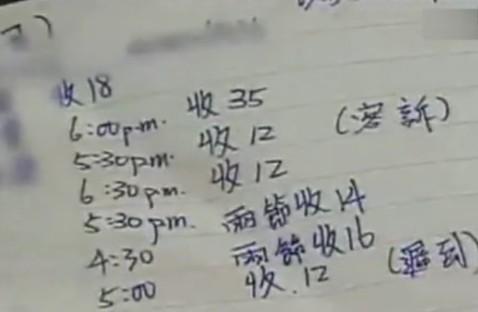 收18
6:00p.m. 收35
5:30pm. 收12 (客訴)
6:30pm. 收12
5:30pm. 兩節收14
4:30 兩節收16
5:00 收.12 (遲到)